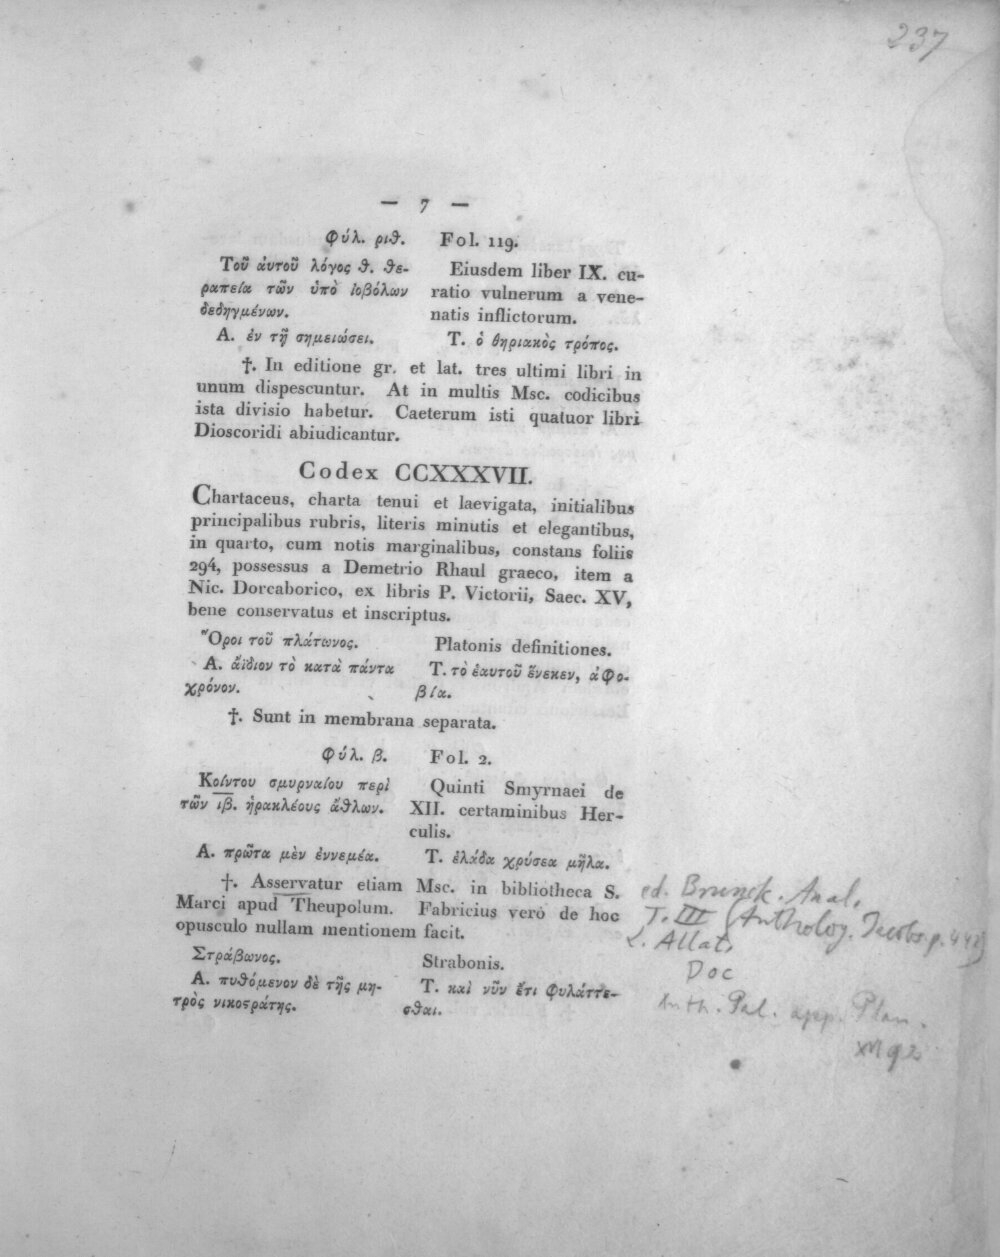 237
— 7 —
Φύλ. ριθ. Fol. 119.
Τοῦ ἀυτοῦ λόγος θ. θε-
ραπεία τῶν ὑπὸ ἰοβόλων
δεδηγμένων.
Eiusdem liber IX. cu-
ratio vulnerum a vene-
natis inflictorum.
Α. ἐν τῇ σημειώσει. Τ. ὁ θηριακὸς τρόπος.
†. In editione gr. et lat. tres ultimi libri in
unum dispescuntur. At in multis Msc. codicibus
ista divisio habetur. Caeterum isti quatuor libri
Dioscoridi abiudicantur.
Codex CCXXXVII.
Chartaceus, charta tenui et laevigata, initialibus
principalibus rubris, literis minutis et elegantibus,
in quarto, cum notis marginalibus, constans foliis
294, possessus a Demetrio Rhaul graeco, item a
Nic. Dorcaborico, ex libris P. Victorii, Saec. XV,
bene conservatus et inscriptus.
Ὅροι τοῦ πλάτωνος. Platonis definitiones.
Α. ἀΐδιον τὸ κατὰ πάντα
χρόνον.
Τ. τὸ ἑαυτοῦ ἕνεκεν, ἀφο-
βία.
†. Sunt in membrana separata.
Φύλ. β. Fol. 2.
Κοίντου σμυρναίου περὶ
τῶν ιβ. ἡρακλέους ἄθλων.
Quinti Smyrnaei de
XII. certaminibus Her-
culis.
Α. πρῶτα μὲν ἐννεμέα. Τ. ἐλάδα χρύσεα μῆλα.
†. Asservatur etiam Msc. in bibliotheca S.
Marci apud Theupolum. Fabricius vero de hoc
opusculo nullam mentionem facit.
ed. Brunck. Anal.
T. III (Antholog. Jacobs. p.
L. Allat.
Doc
Anth. Pal. app. Plan.
XVI 92
Στράβωνος. Strabonis.
Α. πυθόμενον δὲ τῆς μη-
τρὸς νικοστράτης.
Τ. καὶ νῦν ἔτι φυλάττε-
σθαι.